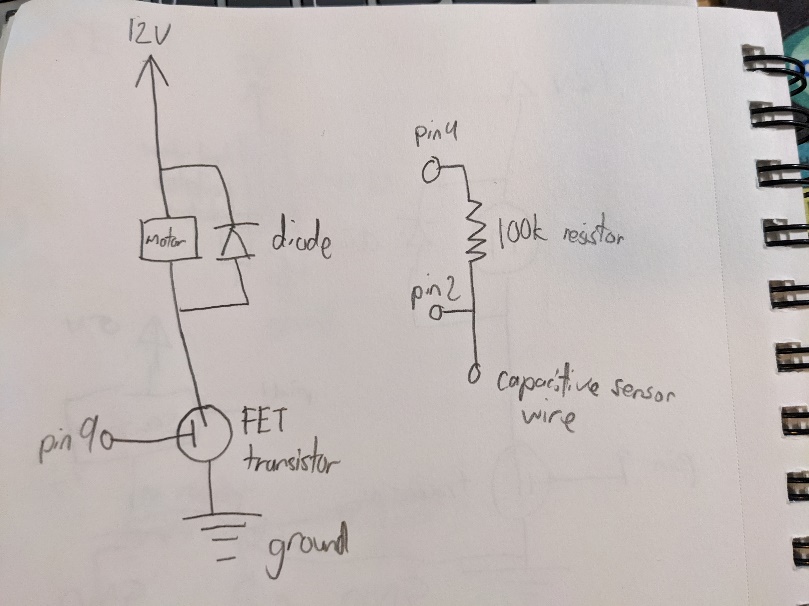 12V
motor
diode
pin 9
FET
transistor
ground
pin 4
100k resistor
pin 2
capacitive sensor
wire